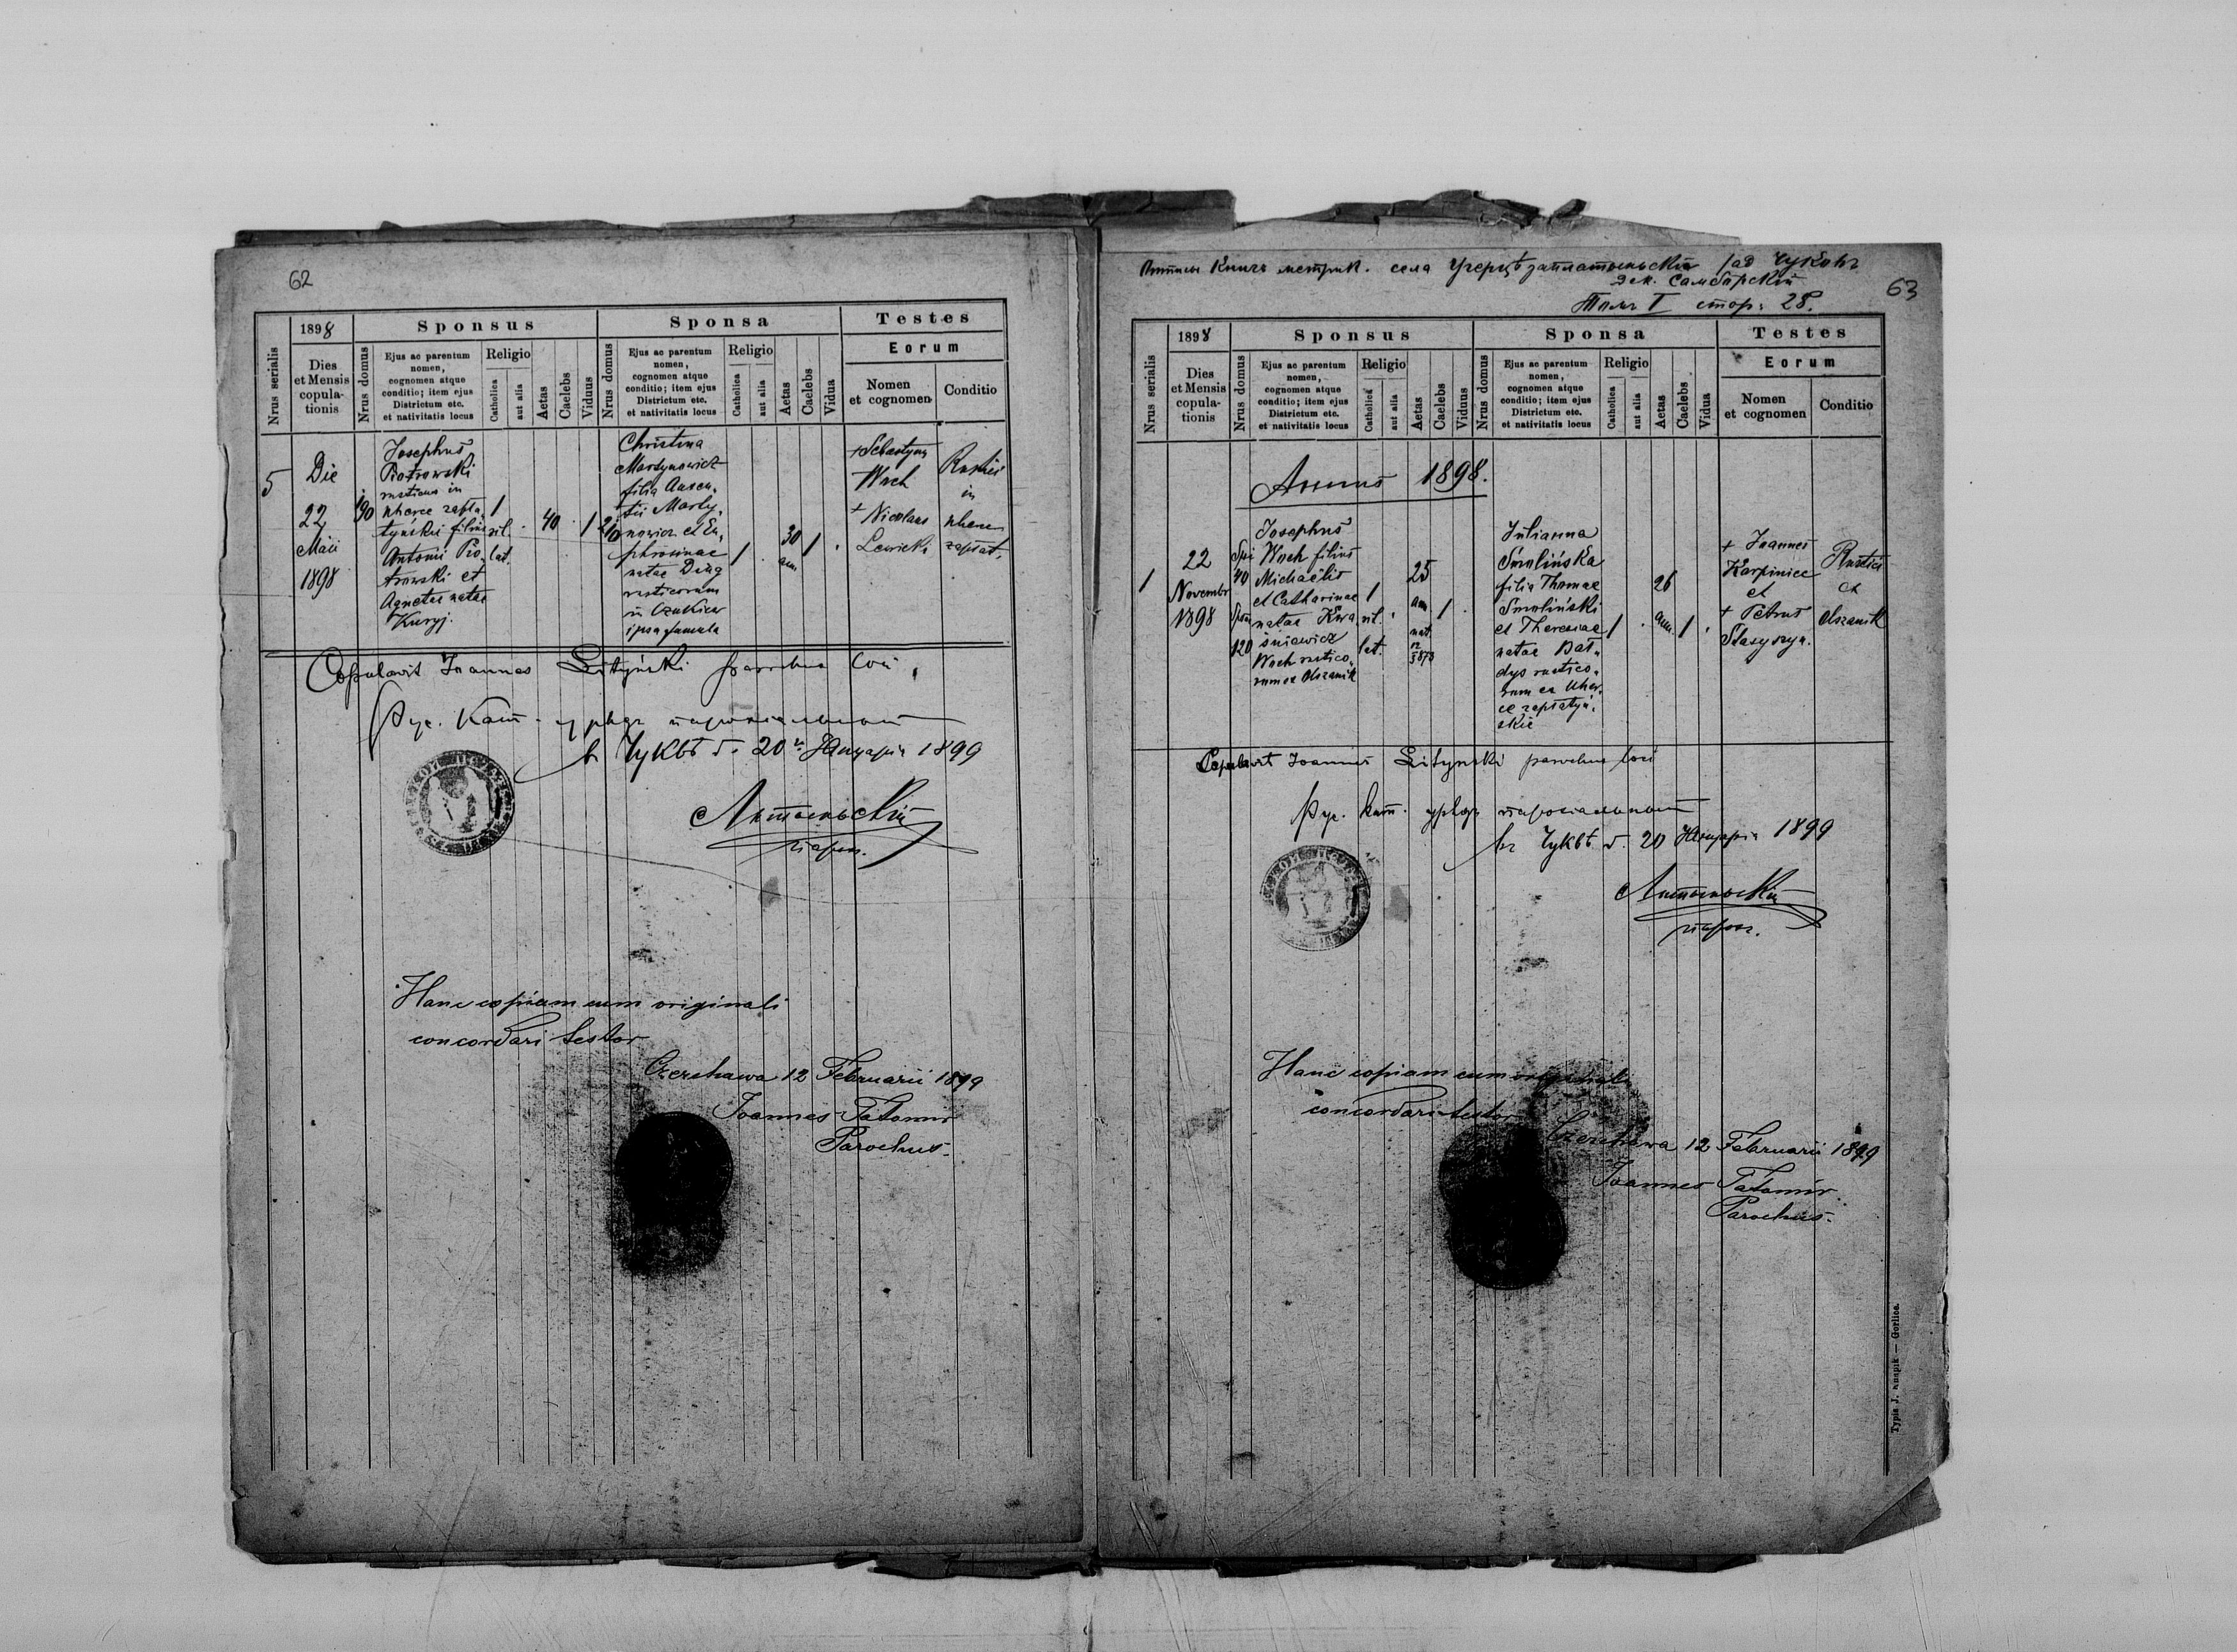 62
1898
Sponsus
Sponsa
Testes
Nrus serialis
Dies
et Mensis
copula-
tionis
Nrus domus
Ejus ac parentum
nomen,
cognomen atque
conditio; item ejus
Districtum etc.
et nativitatis locus
Religio
Catholica
aut alia
Aetas
Caelebs
Viduus
Nrus domus
Ejus ac parentum
nomen,
cognomen atque
conditio; item ejus
Districtum etc.
et nativitatis locus
Religio
Catholica
aut alia
Aetas
Caelebs
Vidua
Eorum
Nomen
et cognomen
Conditio
5
Die
22
Maii
1898
190
Josephus
Piotrowski
rusticus in
Uherce zapła-
tyński filius
Antonii Pio-
trowski et
Agnetae natae
Kuryj.
1
rit.
lat.
40
1
210
Christina
Martynowicz
filia Auxen-
tii Marty-
nowicz et Eu-
phrosinae
natae Dług
rusticorum
in Czukiew
ipsa famula
1
30
ann
1
+ Sebastyan
Wach
+ Nicolaus
Lewicki
Rustici
in
Uherce
zapłat.
Copulavit Joannes Lityński parochus loci
Рус. Кат. урядъ парохіальный
въ Чуквѣ д. 20 Януарія 1899
Литыньскій
парох.
Hanc copiam cum originali
concordari testor
Czerchawa 12 Februarii 1899
Joannes Tatomir
Parochus.
Выписъ Книгъ метрик. села Угерцѣ заплатыньскіи
дек. Самборскій
Томъ I стор. 28.
63
1898
Sponsus
Sponsa
Testes
Nrus serialis
Dies
et Mensis
copula-
tionis
Nrus domus
Ejus ac parentum
nomen,
cognomen atque
conditio; item ejus
Districtum etc.
et nativitatis locus
Religio
Catholica
aut alia
Aetas
Caelebs
Viduus
Nrus domus
Ejus ac parentum
nomen,
cognomen atque
conditio; item ejus
Districtum etc.
et nativitatis locus
Religio
Catholica
aut alia
Aetas
Caelebs
Vidua
Eorum
Nomen
et cognomen
Conditio
Annus 1898.
1
22
Novembr
1898
Spi
40
Spsae
120
Josephus
Wach filius
Michaëlis
et Catharinae
natae Kwa
śniewicz
Wach rustico-
rum ex Olszanik
1
rit.
lat.
25
ann
nat.
1873
1
Julianna
Smolińska
filia Thomae
Smoliński
et Theresiae
natae Bał-
dys rustico-
rum ex Uher-
ce zapłatyń-
skie
1
26
ann.
1
+ Joannes
Karpiniec
et
+ Petrus
Stasyszyn.
Rustici
ex
Olszanik
Copulavit Joannes Lityński parochus loci
Рус. Кат. урядъ парохіальный
въ Чуквѣ д. 20 Януарія 1899
Литыньскій
парох.
Hanc copiam cum originali
concordari testor
Czerchawa 12 Februarii 1899
Joannes Tatomir
Parochus.
Typis J. Knapik — Gorlice.